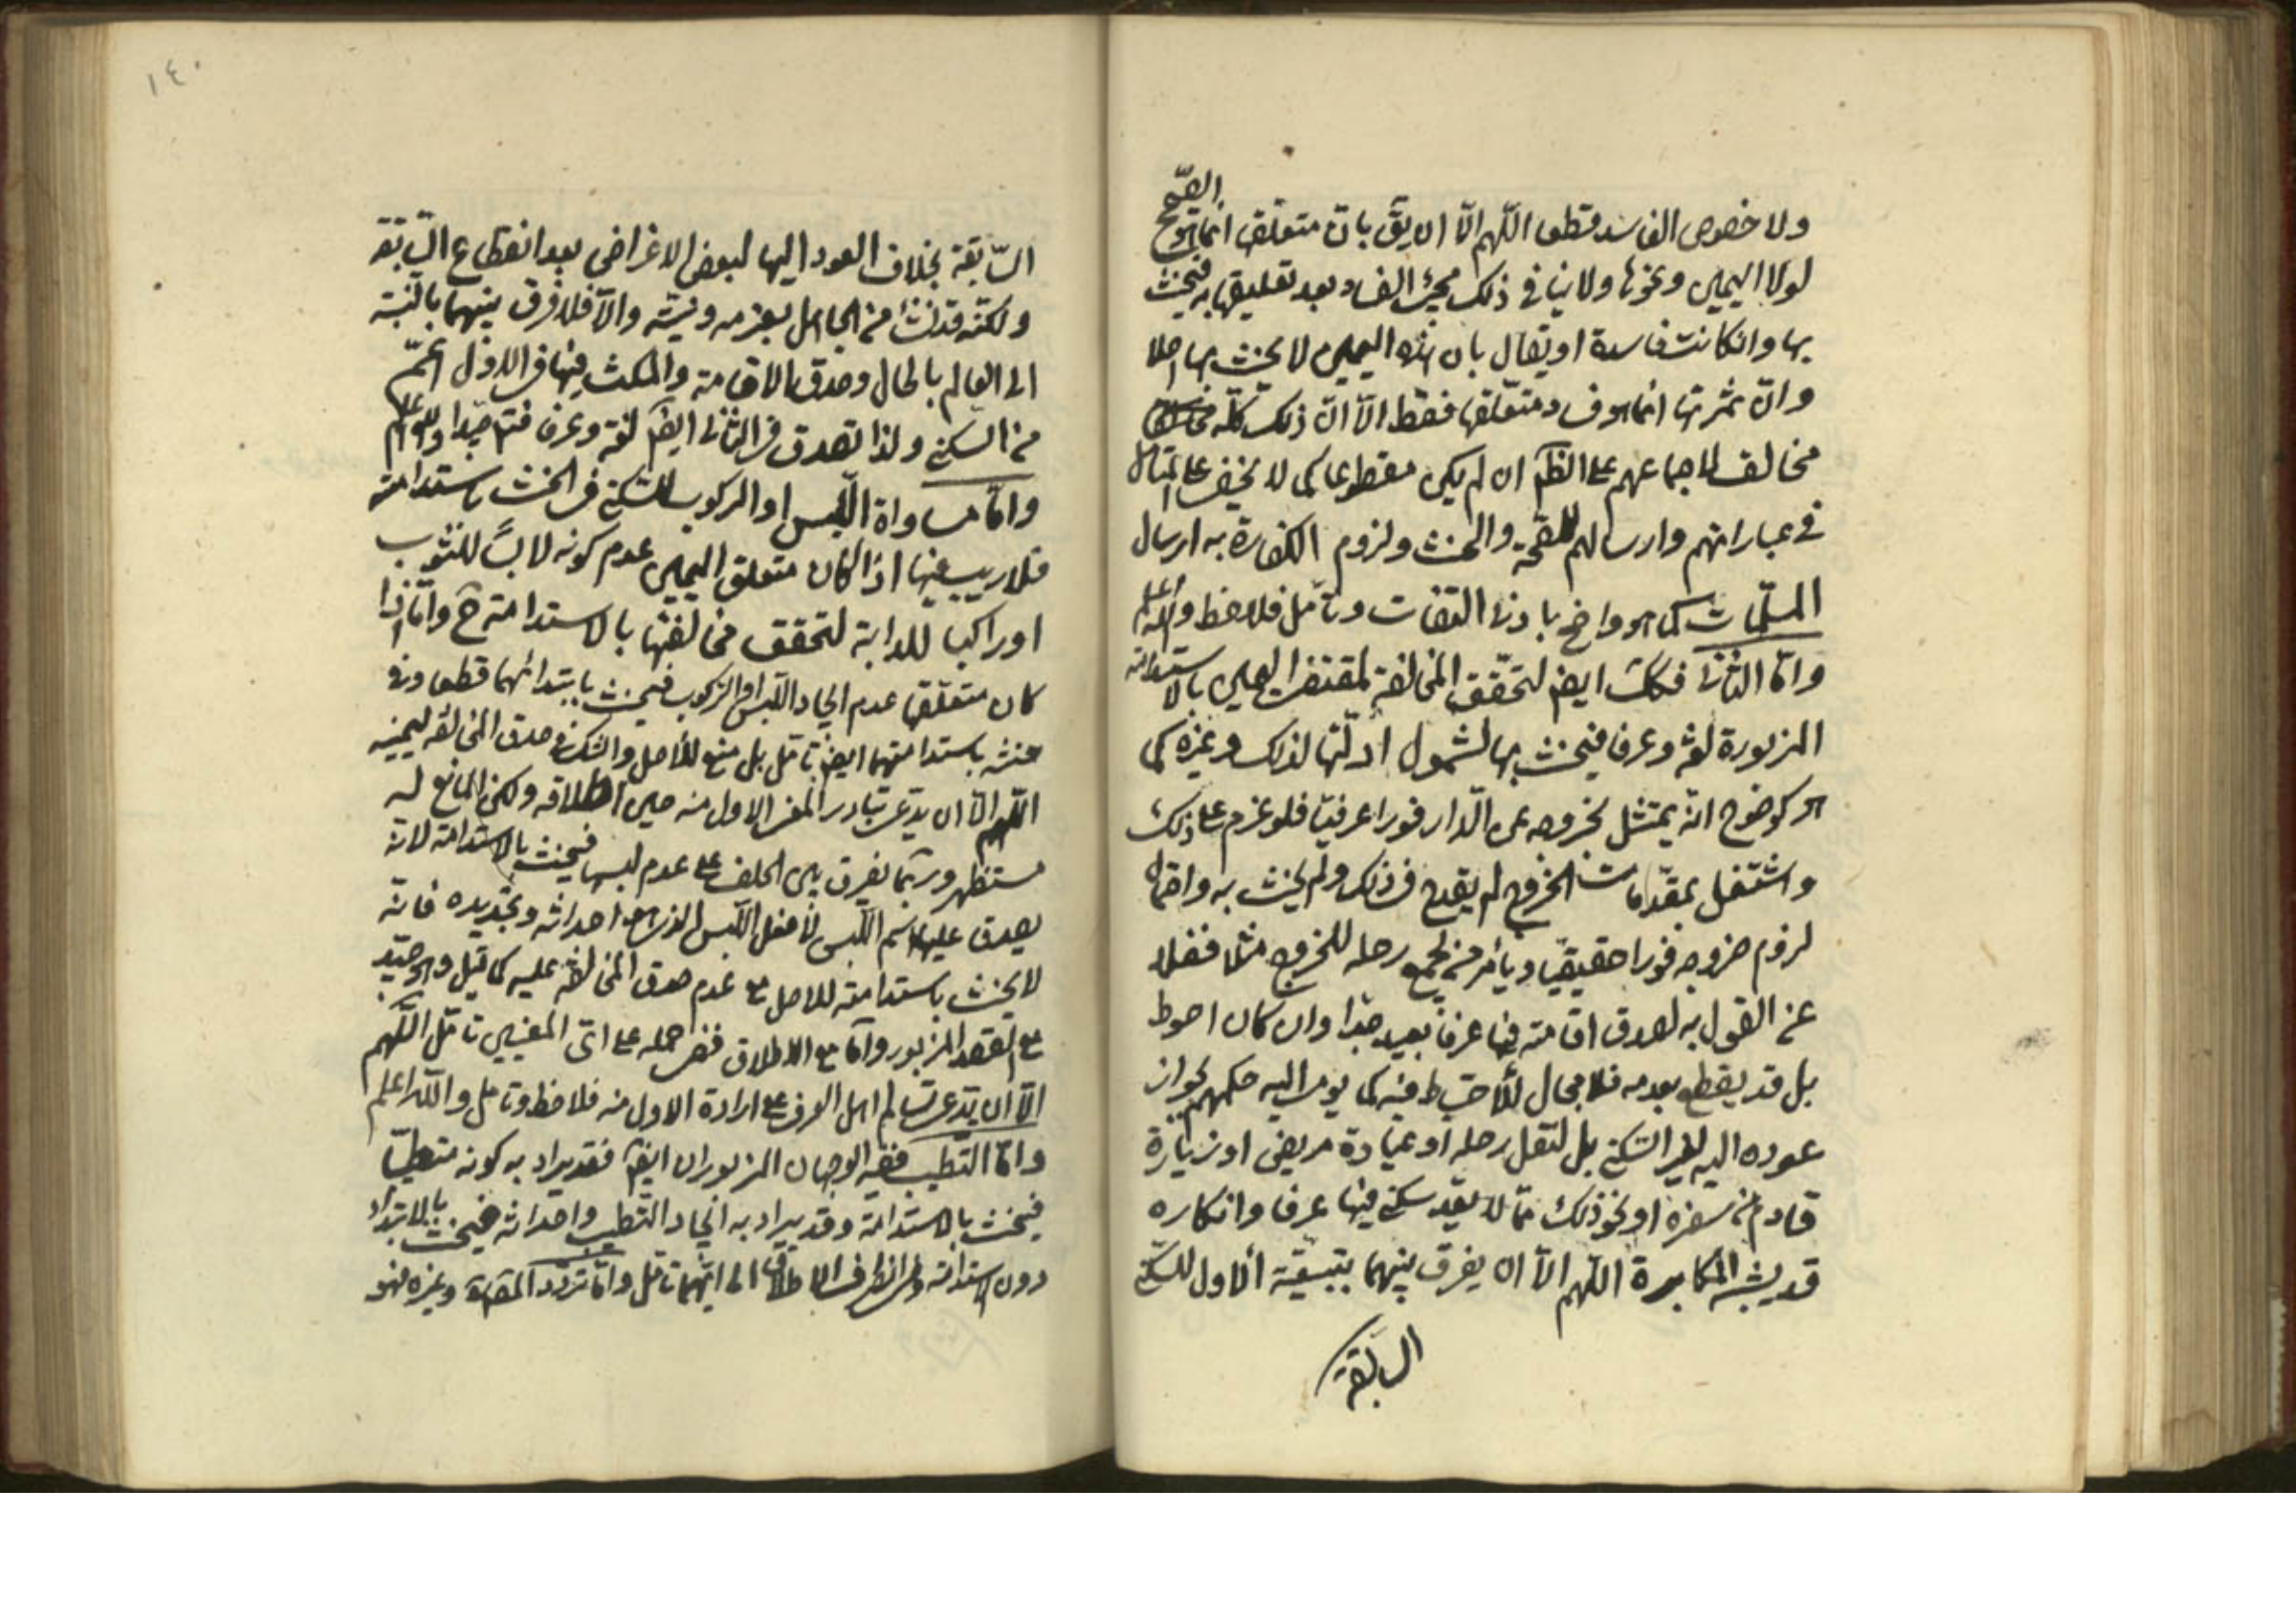 ولا خصوص الفاسد قطعا اللّهم الّا ان يقّ بانّ متعلّقها انّما هو الصّحيح
لولا اليمين ونحوها ولا ينافي ذلك مجيئ الفساد بعد تعليقها به فيحنث
بها وان كانت فاسدة او يقال بان هذه اليمين لا يحنث بها اصلا
وانّ ثمرتها انما هو فساد متعلّقها فقط الّا انّ ذلك كلّه
مخالف لاجماعهم على الظّم ان لم يكن مقطوعا كما لا يخفى على المتأمّل
في عباراتهم وارسالهم للصّحة والحنث ولزوم الكفارة به ارسال
المسلّمات كما هو واضح بادنى التفات وتأمّل فلاحظ والله اعلم
وامّا الثاني فكك ايضا لتحقّق المخالفة لمقتضى اليمين بالاستدامة
المزبورة لغة وعرفا فيحنث بها لشمول ادلّتها لذلك وغيره كما
هو كوضوح انّه يمتثل بخروجه عن الدّار فورا عرفيّا فلو عزم على ذلك
واشتغل بمقدّمات الخروج لم يقدح في ذلك ولم يحنث به واحتمال
لزوم خروجه فورا حقيقيّا ويأمر من يجمع رحله للخروج مثلا فضلا
عن القول به لصدق اقامته فيها عرفا بعيد جدّا وان كان احوط
بل قد يقطع بعدمه فلا مجال للأحتياط فيه كما يومي اليه حكمهم بجواز
عوده اليه لغير السّكنى بل لنقل رحله او عيادة مريض او زيارة
قادم من سفره او نحو ذلك ممّا لا يعدّ سكنى فيها عرفا وانكاره
قد يشبه المكابرة اللّهم الّا ان يفرق بينهما بتبعيّة الأول للسّكنى
السّابقة
١٤٠
السّابقة بخلاف العود اليها لبعض الاغراض بعد انقطاع السّابقة
ولكنّه قد نشأ من الجاهل بعزمه ونيّته والّا فلا فرق بينهما بالنّسبة
الى العالم بالحال وصدق الاقامة والمكث فيها في الاوّل اعمّ
من السّكنى ولذا تصدق في الثاني ايضا لغة وعرفا فتم جيّدا والله اعلم
وامّا مساواة اللّبس او الركوب للسّكنى في الحنث باستدامته
فلا ريب فيها اذا كان متعلق اليمين عدم كونه لابسًا للثوب
او راكبا للدابة لتحقق مخالفتها بالاستدامة ح وامّا اذا
كان متعلقها عدم ايجاد اللّبس او الرّكوب فيحنث بابتدائهما قطعا وفي
حنثه باستدامتهما ايضا تأمّل بل منع للأصل والشك في صدق المخالفة ليمينه
اللّهم الّا ان يدّعى تبادر المعنى الاول منه حين اطلاقه ولكن المانع له
مستظهر وربّما يفرق بين الحلف على عدم لبسها فيحنث بالاستدامة لانّه
يصدق عليها اسم اللّبس لا فعل اللّبس الذي هو احداثه وتجديده فانّه
لا يحنث باستدامته للاصل مع عدم صدق المخالفة عليه كما قيل وهو جيّد
مع القصد المزبور وامّا مع الاطلاق ففي حمله على ايّ المعنيين تأمّل اللّهم
الّا ان يدّعى تسالم اهل العرف على ارادة الاول منه فلاحظ وتأمل والله اعلم
وامّا التّطيّب ففيه الوجهان المزبوران ايضا فقد يراد به كونه متطيّبا
فيحنث بالاستدامة وقد يراد به ايجاد التّطيّب واحداثه فيحنث بالابتداء
دون الاستدامة وفي انظراف الاطلاق الى ايّهما تأمّل وامّا تردّد المص وغيره فهو